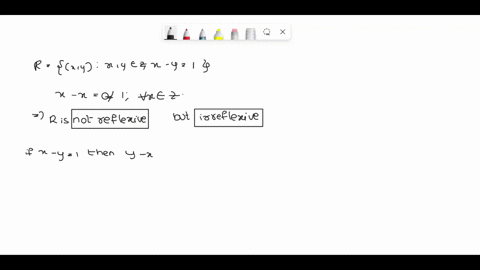 R = {(x,y) : x,y ∈ Z, x - y = 1}
x - x = 0 ≠ 1; ∀x ∈ Z.
⇒) R is not reflexive but irreflexive
if x - y = 1 then y - x